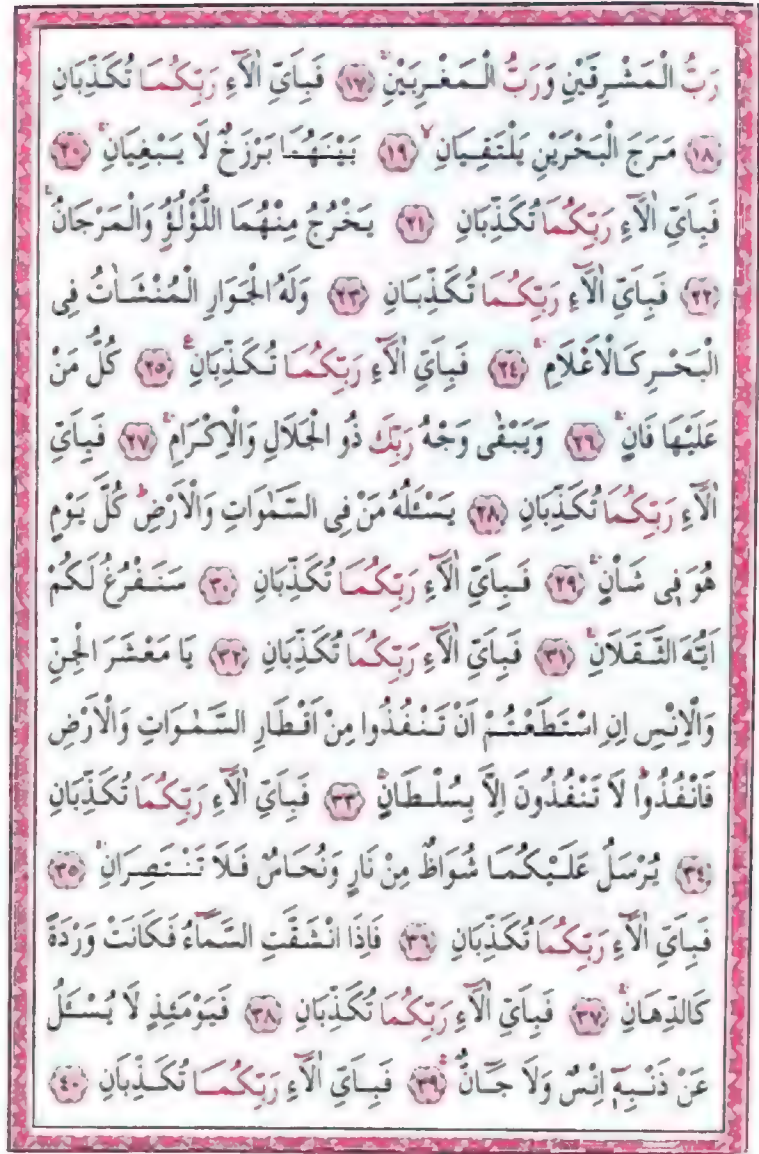 رَبُّ الْمَشْرِقَيْنِ وَرَبُّ الْمَغْرِبَيْنِۚ ﴿١٧﴾ فَبِاَيِّ اٰلَٓاءِ رَبِّكُمَا تُكَذِّبَانِ
﴿١٨﴾ مَرَجَ الْبَحْرَيْنِ يَلْتَقِيَانِۙ ﴿١٩﴾ بَيْنَهُمَا بَرْزَخٌ لَا يَبْغِيَانِۚ ﴿٢٠﴾
فَبِاَيِّ اٰلَٓاءِ رَبِّكُمَا تُكَذِّبَانِ ﴿٢١﴾ يَخْرُجُ مِنْهُمَا اللُّؤْلُؤُ وَالْمَرْجَانُۚ
﴿٢٢﴾ فَبِاَيِّ اٰلَٓاءِ رَبِّكُمَا تُكَذِّبَانِ ﴿٢٣﴾ وَلَهُ الْجَوَارِ الْمُنْشَاٰتُ فِى
الْبَحْرِ كَالْاَعْلَامِۚ ﴿٢٤﴾ فَبِاَيِّ اٰلَٓاءِ رَبِّكُمَا تُكَذِّبَانِ۟ ﴿٢٥﴾ كُلُّ مَنْ
عَلَيْهَا فَانٍۚ ﴿٢٦﴾ وَيَبْقٰى وَجْهُ رَبِّكَ ذُو الْجَلَالِ وَالْاِكْرَامِۚ ﴿٢٧﴾ فَبِاَيِّ
اٰلَٓاءِ رَبِّكُمَا تُكَذِّبَانِ ﴿٢٨﴾ يَسْـَٔلُهُ مَنْ فِى السَّمٰوَاتِ وَالْاَرْضِۜ كُلَّ يَوْمٍ
هُوَ فِى شَاْنٍۚ ﴿٢٩﴾ فَبِاَيِّ اٰلَٓاءِ رَبِّكُمَا تُكَذِّبَانِ ﴿٣٠﴾ سَنَفْرُغُ لَكُمْ
اَيُّهَ الثَّقَلَانِۚ ﴿٣١﴾ فَبِاَيِّ اٰلَٓاءِ رَبِّكُمَا تُكَذِّبَانِ ﴿٣٢﴾ يَا مَعْشَرَ الْجِنِّ
وَالْاِنْسِ اِنِ اسْتَطَعْتُمْ اَنْ تَنْفُذُوا مِنْ اَقْطَارِ السَّمٰوَاتِ وَالْاَرْضِ
فَانْفُذُواۜ لَا تَنْفُذُونَ اِلَّا بِسُلْطَانٍۚ ﴿٣٣﴾ فَبِاَيِّ اٰلَٓاءِ رَبِّكُمَا تُكَذِّبَانِ
﴿٣٤﴾ يُرْسَلُ عَلَيْكُمَا شُوَاظٌ مِنْ نَارٍ وَنُحَاسٌ فَلَا تَنْتَصِرَانِۚ ﴿٣٥﴾
فَبِاَيِّ اٰلَٓاءِ رَبِّكُمَا تُكَذِّبَانِ ﴿٣٦﴾ فَاِذَا انْشَقَّتِ السَّمَٓاءُ فَكَانَتْ وَرْدَةً
كَالدِّهَانِۚ ﴿٣٧﴾ فَبِاَيِّ اٰلَٓاءِ رَبِّكُمَا تُكَذِّبَانِ ﴿٣٨﴾ فَيَوْمَئِذٍ لَا يُسْـَٔلُ
عَنْ ذَنْبِهٖٓ اِنْسٌ وَلَا جَٓانٌّۚ ﴿٣٩﴾ فَبِاَيِّ اٰلَٓاءِ رَبِّكُمَا تُكَذِّبَانِ ﴿٤٠﴾